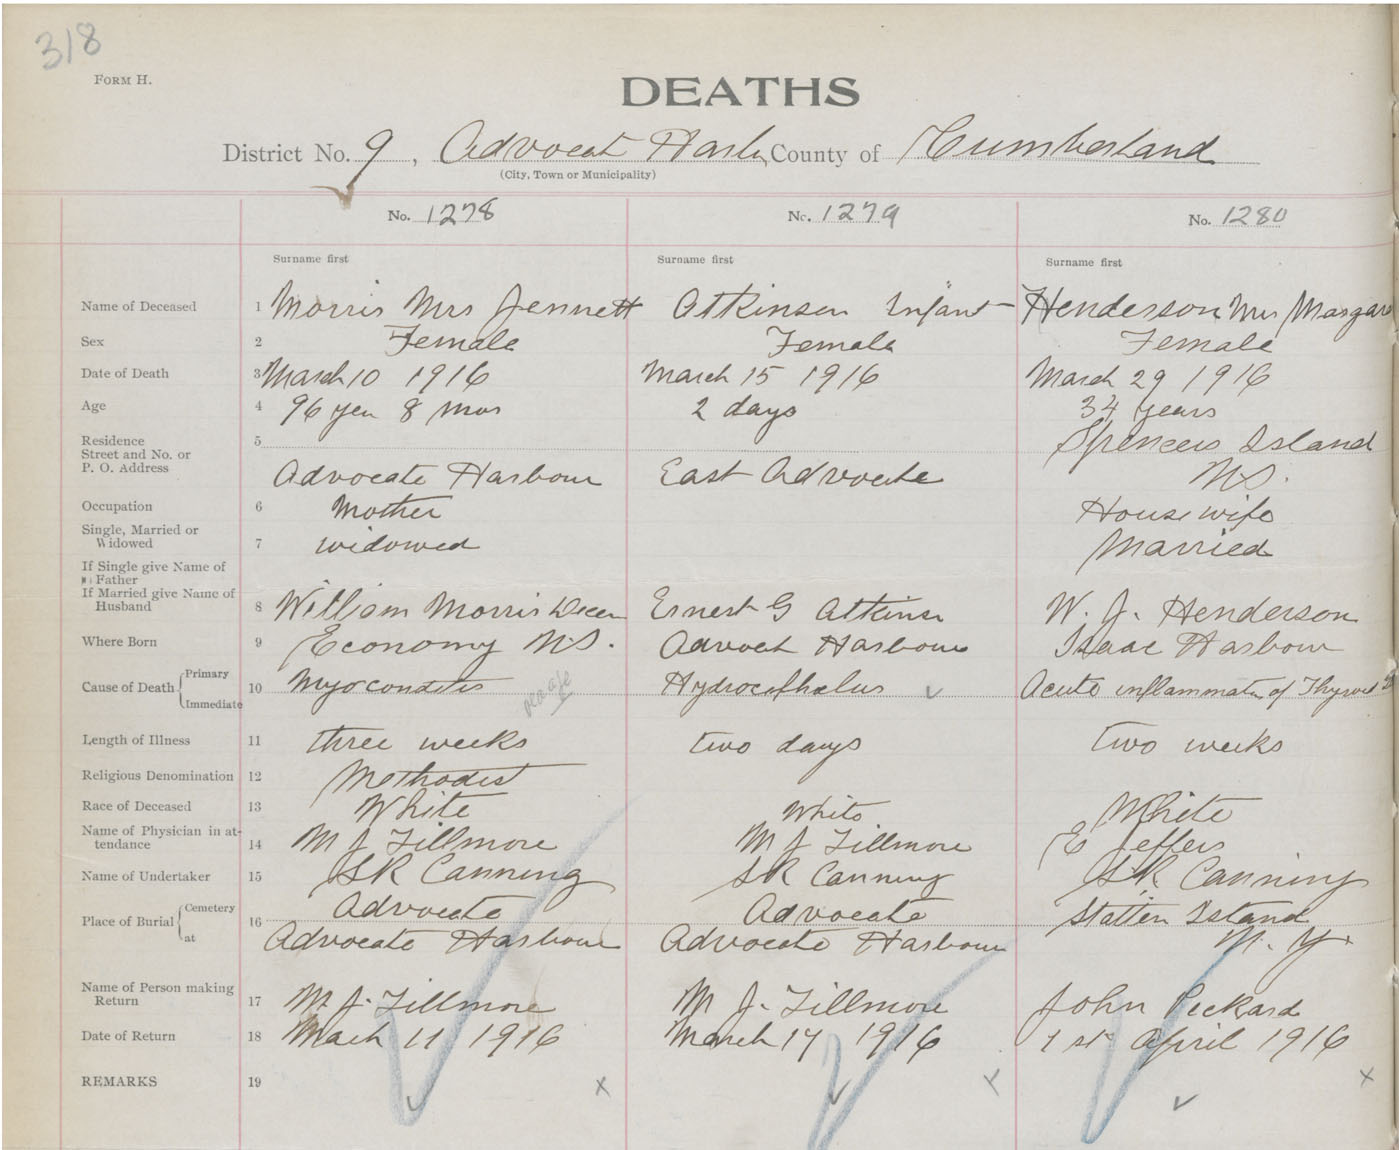 318
FORM H.
DEATHS
District No. 9, Advocat Harbr, County of Cumberland
(City, Town or Municipality)
No. 1278 No. 1279 No. 1280
Surname first Surname first Surname first
Name of Deceased 1 Morris Mrs Jennett Atkinson Infant Henderson Mrs Margar
Sex 2 Female Female Female
Date of Death 3 March 10 1916 March 15 1916 March 29 1916
Age 4 96 yea 8 mos 2 days 34 years
Residence 5 Spencers Island
Street and No. or
P. O. Address Advocate Harbour East Advocate N.S.
Occupation 6 Mother Housewife
Single, Married or
Widowed 7 widowed Married
If Single give Name of
Father
If Married give Name of
Husband 8 William Morris Decea Ernest G Atkinson W. J. Henderson
Where Born 9 Economy N.S. Advocat Harbour Isaac Harbour
Cause of Death Primary 10 Myocarditis Hydrocephalus Acute inflammation of Thyroid
Immediate
Length of Illness 11 three weeks two days two weeks
Religious Denomination 12 Methodist
Race of Deceased 13 White White White
Name of Physician in at-
tendance 14 M J Fillmore M J Fillmore E Jeffers
Name of Undertaker 15 S R Canning S R Canning S R Canning
Place of Burial Cemetery 16 Advocate Advocate Statten Island
at Advocate Harbour Advocate Harbour N. Y.
Name of Person making
Return 17 M. J. Fillmore M J. Fillmore John Peckard
Date of Return 18 March 11 1916 March 17 1916 1st April 1916
REMARKS 19 x x x